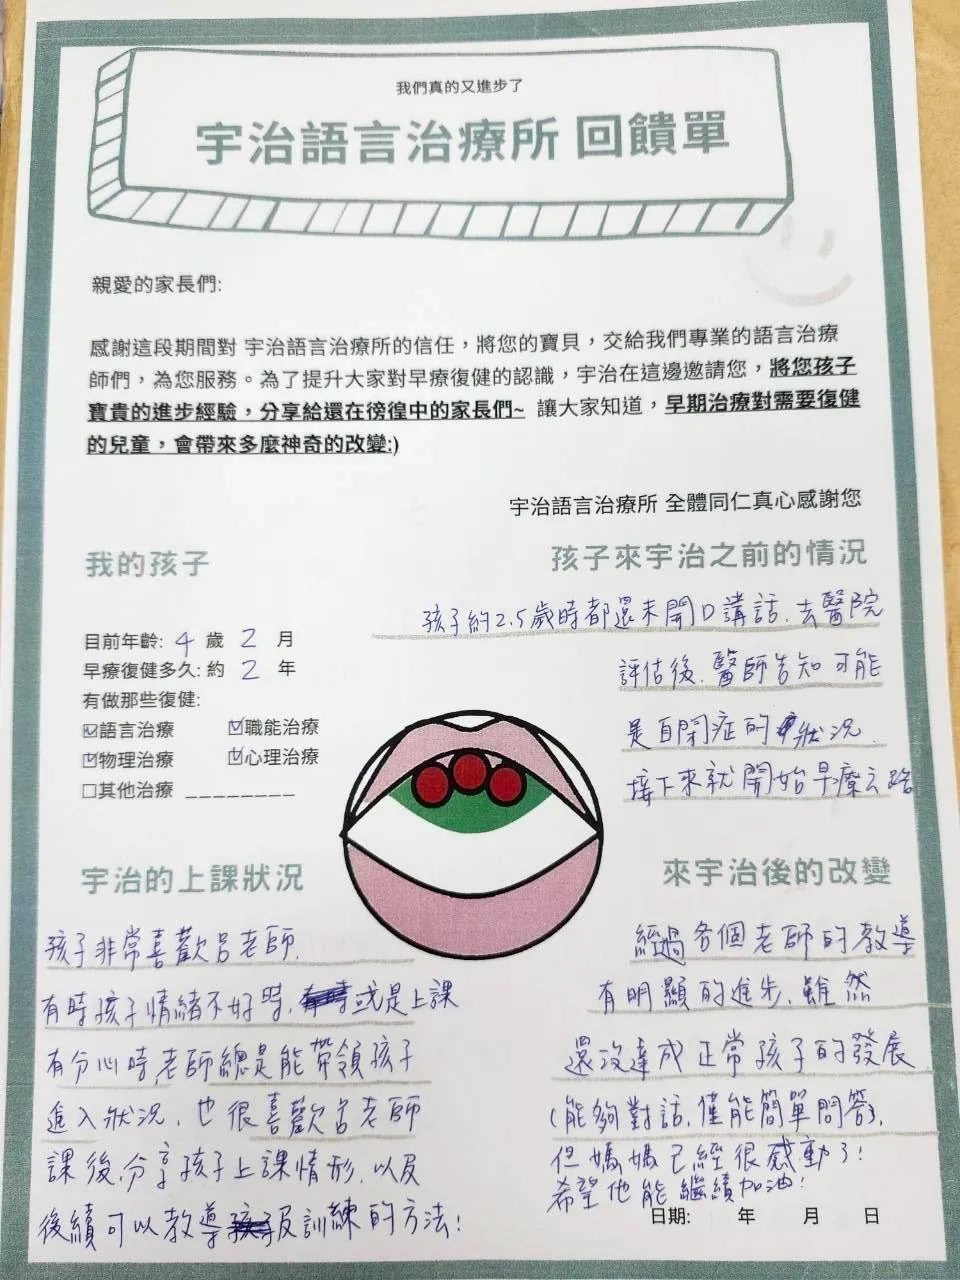 我們真的又進步了
宇治語言治療所 回饋單
親愛的家長們:
感謝這段期間對 宇治語言治療所的信任，將您的寶貝，交給我們專業的語言治療
師們，為您服務。為了提升大家對早療復健的認識，宇治在這邊邀請您，將您孩子
寶貴的進步經驗，分享給還在徬徨中的家長們~ 讓大家知道，早期治療對需要復健
的兒童，會帶來多麼神奇的改變:)
宇治語言治療所 全體同仁真心感謝您
我的孩子
目前年齡: 4 歲 2 月
早療復健多久: 約 2 年
有做那些復健:
☑語言治療 ☑職能治療
☑物理治療 ☑心理治療
□其他治療 _________
孩子來宇治之前的情況
孩子約2.5歲時都還未開口講話.去醫院
評估後.醫師告知可能
是自閉症的狀況.
接下來就開始早療之路
宇治的上課狀況
孩子非常喜歡呂老師.
有時孩子情緒不好時,或是上課
有分心時,老師總是能帶領孩子
進入狀況.也很喜歡呂老師
課後.分享孩子上課情形.以及
後續可以教導及訓練的方法!
來宇治後的改變
經過各個老師的教導
有明顯的進步.雖然
還沒達成正常孩子的發展
(能夠對話.僅能簡單問答).
但媽媽已經很感動了!
希望他能繼續加油!
日期: 年 月 日